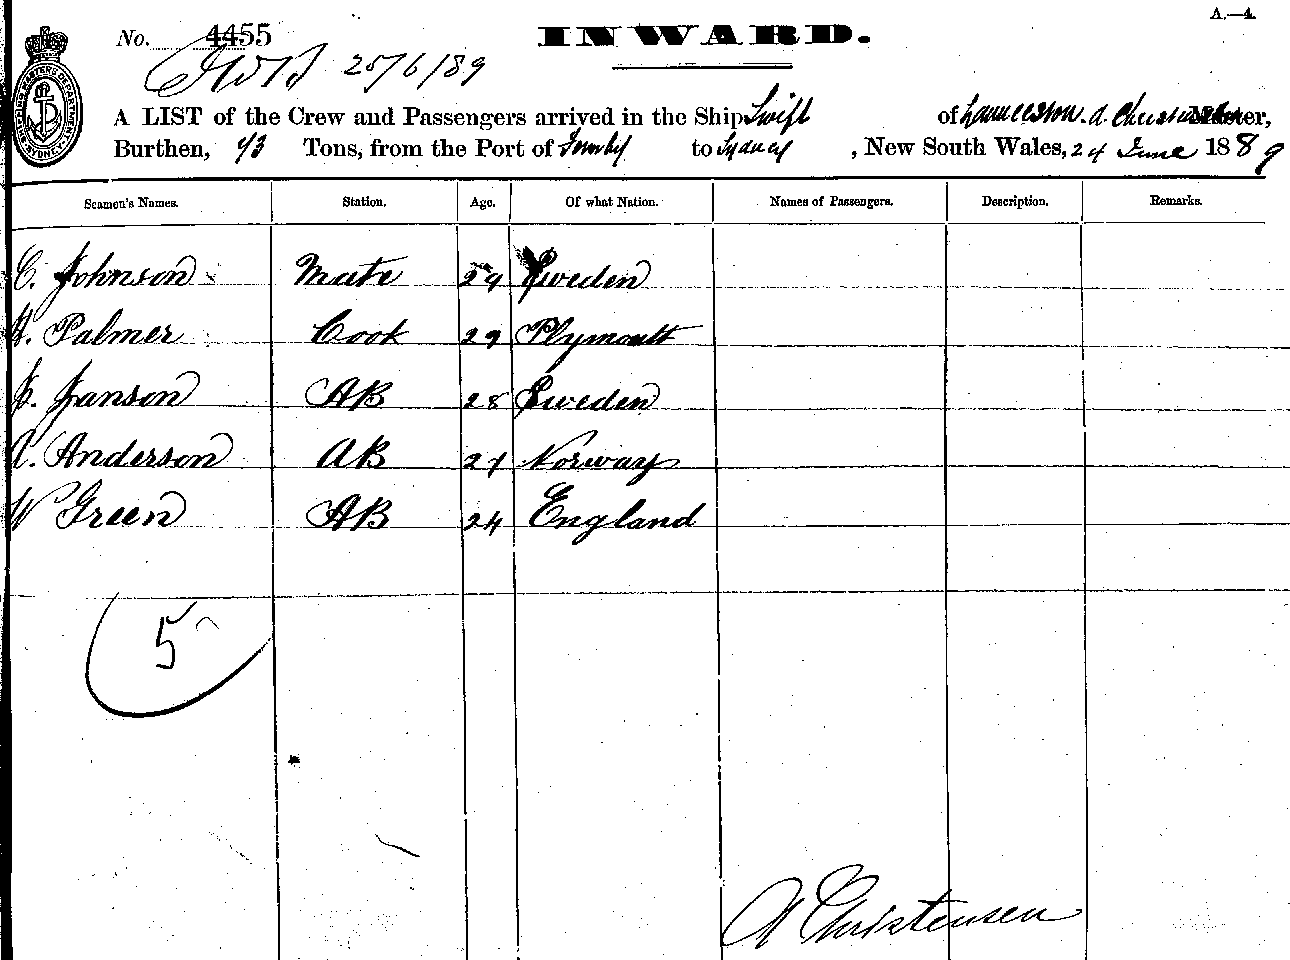 A.—4.
No. 4455
INWARD.
25/6/89
A LIST of the Crew and Passengers arrived in the Ship Swift of Launceston. A. Christensen Master,
Burthen, 93 Tons, from the Port of Formby to Sydney, New South Wales, 24 June 1889
Seamen's Names. Station. Age. Of what Nation. Names of Passengers. Description. Remarks.
C. Johnson Mate 29 Sweden
Palmer Cook 29 Plymouth
J. Janson AB 28 Sweden
A. Anderson AB 21 Norway
W Green AB 24 England
5
A Christensen